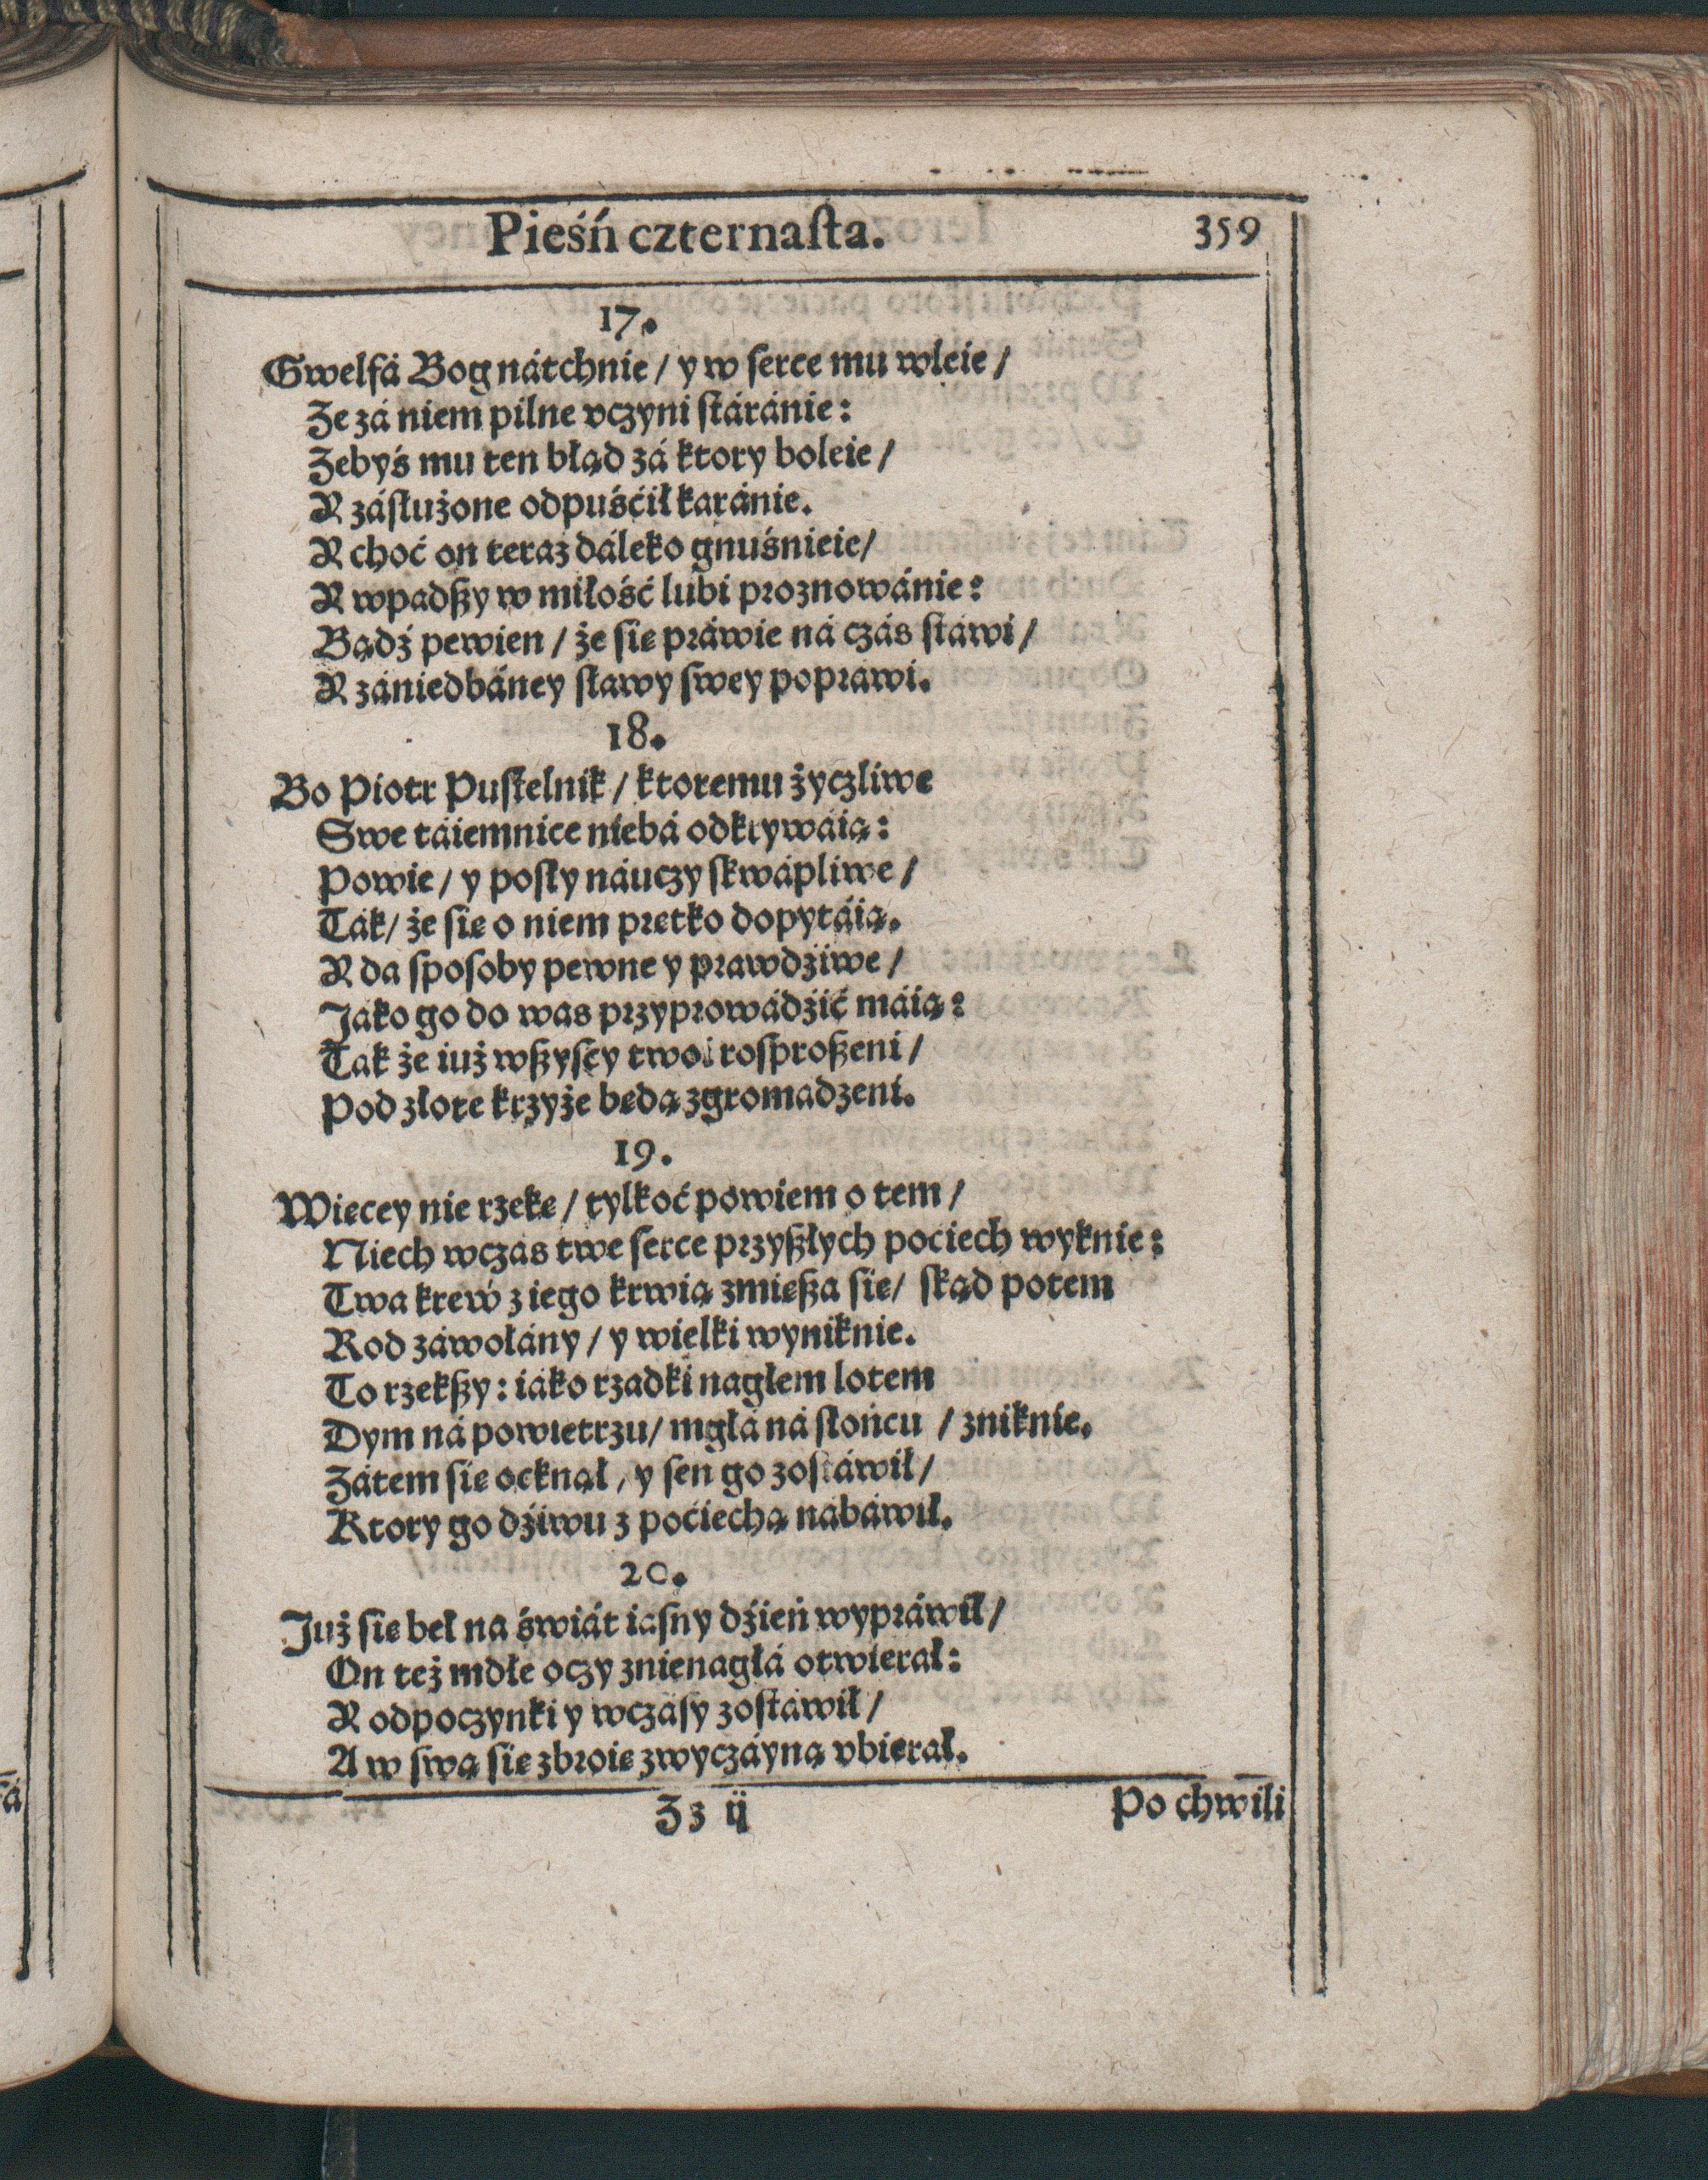 Pieśń czternaſta.
359
17.
Gwelfá Bog nátchnie / y w ſerce mu wleie /
Ze zá niem pilne vczyni ſtáránie:
Zebyś mu ten błąd zá ktory boleie /
A záſłużone odpuśćił karánie.
A choć on teraz dáleko gnuśnieie /
A wpadſzy w miłość lubi proznowánie:
Bądź pewien / że ſie práwie ná czás ſtáwi /
A zániedbáney ſławy ſwey poprawi.
18.
Bo Piotr Puſtelnik / ktoremu życzliwe
Swe táiemnice niebá odkrywáią:
Powie / y poſły náuczy ſkwápliwe /
Ták / że ſie o niem prętko dopytáią.
A da ſpoſoby pewne y prawdźiwe /
Jáko go do was przyprowádźić máią:
Tak że iuż wſzyſcy twoi roſproſzeni /
Pod złote krzyże będą zgromadzeni.
19.
Więcey nie rzekę / tylkoć powiem o tem /
Niech wczas twe ſerce przyſzłych pociech wyknie:
Twa krew z iego krwią zmieſza ſie / ſkąd potem
Rod záwołány / y wielki wyniknie.
To rzekſzy: iáko rzadki nagłem lotem
Dym ná powietrzu / mgłá ná ſłońcu / zniknie.
Zátem ſie ocknął, y ſen go zoſtáwił /
Ktory go dźiwu z pociechą nábáwił.
20.
Już ſie beł na świát iaſny dźień wypráwił /
On też mdłe oczy znienagłá otwierał:
A odpoczynki y wczáſy zoſtáwił /
A w ſwą ſie zbroię zwyczáyną vbierał.
Zz ij
Po chwili